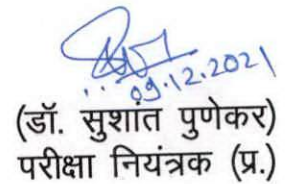 09.12.2021
(डॉ. सुशांत पुणेकर)
परीक्षा नियंत्रक (प्र.)